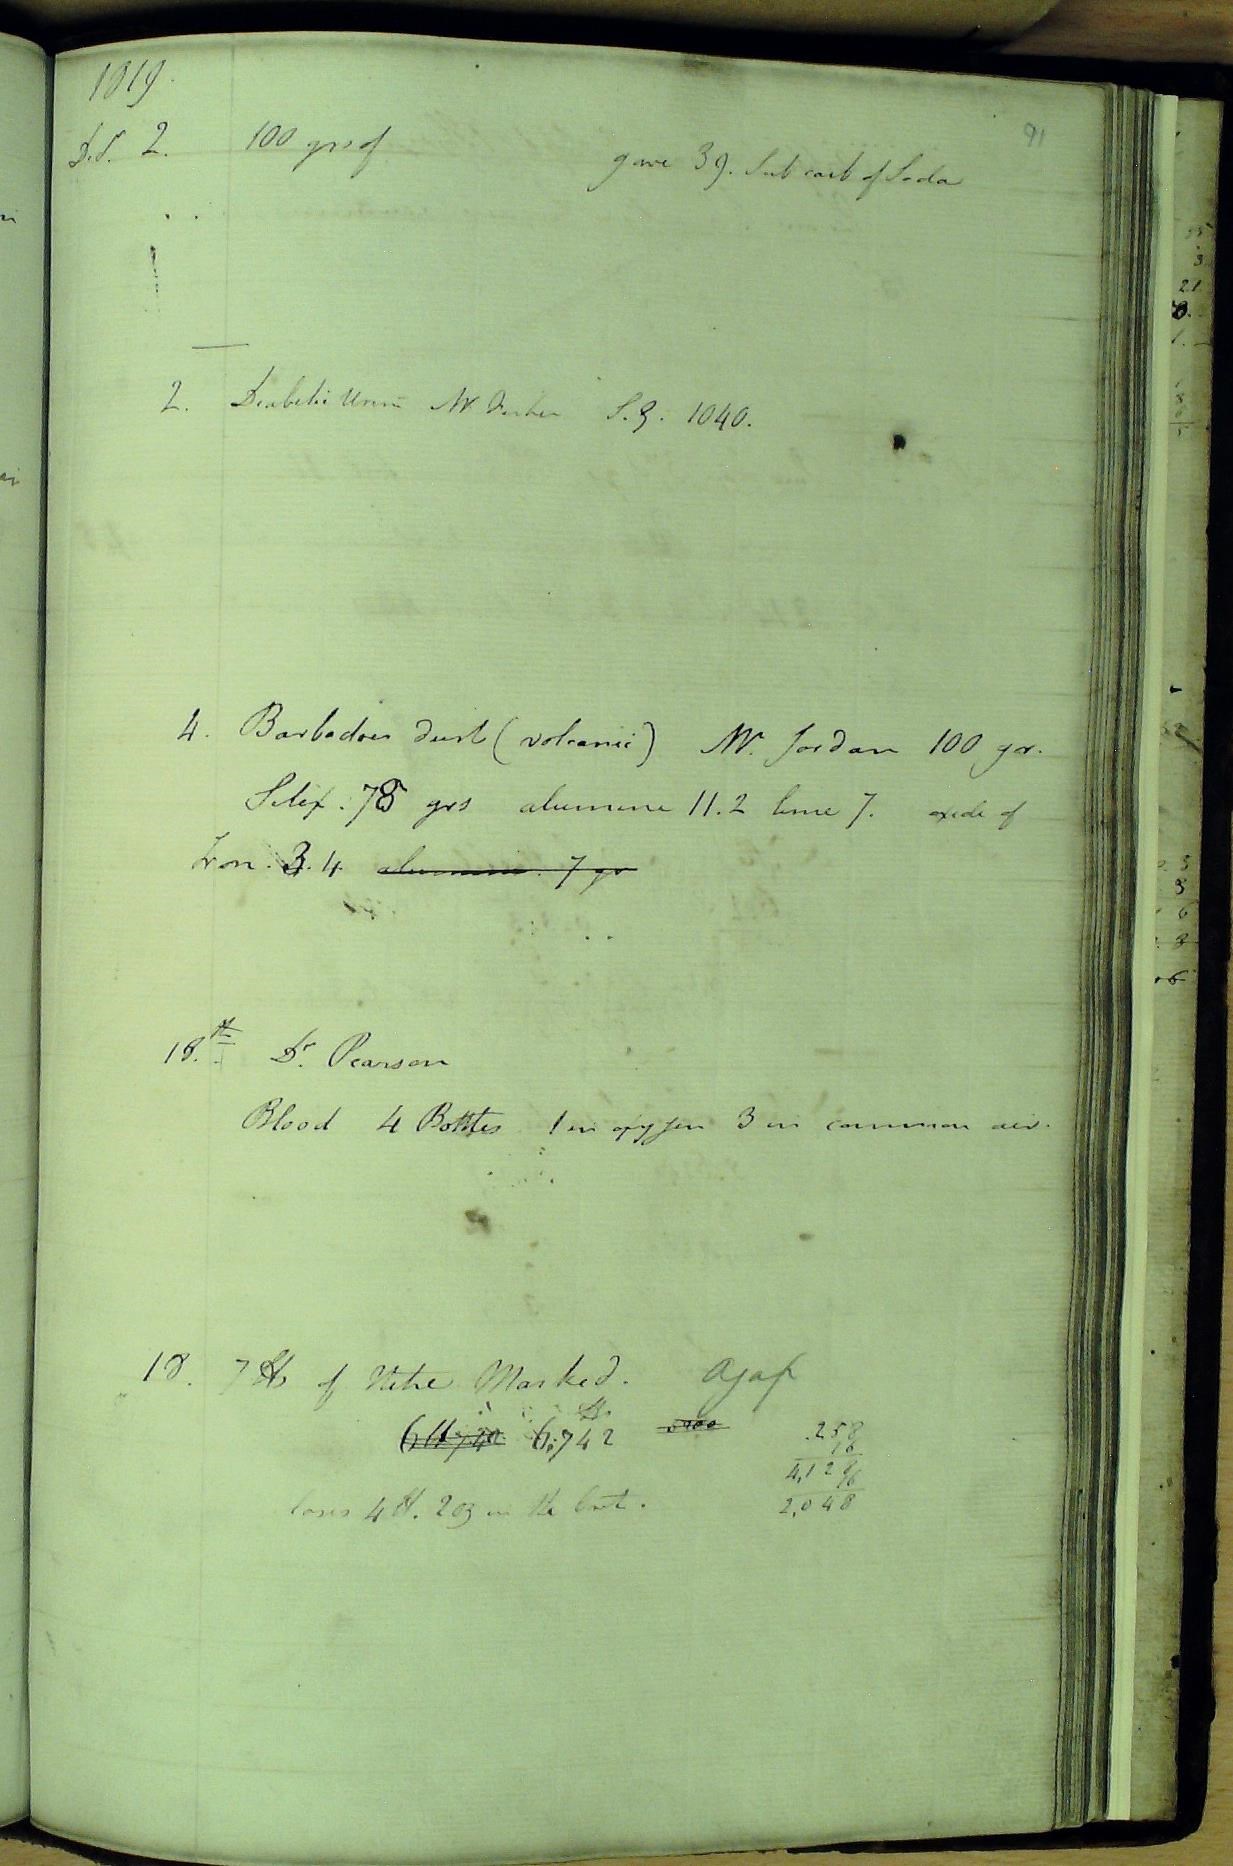 1819.
91
2. 100 grs of gave 39. Sub carb of Soda
2. Diabetic Urine Mr S.G. 1040.
4. Barbadoes dust (volcanic) Mr. Jordan 100 gr.
Silex. 78 grs alumine 11.2 lime 7. oxide of
Iron. 3.4 alumine. 7 gr
18.th Dr. Pearson
Blood 4 Bottles 1 in oxygen 3 in common air.
18. 7 lbs of Nitre Marked.
6 lb 740 6.742 lb.
.258
16
4,128
16
2,048
loses 4 lb. 2oz in the Cwt.